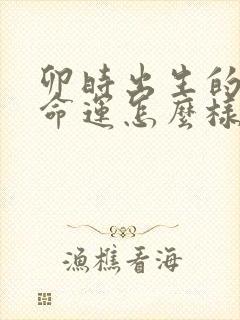 卯時出生的
命運怎麼樣
漁樵看海